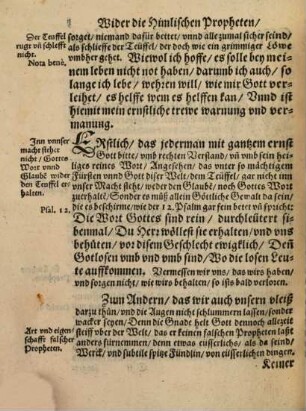 Wider die Himlischen Propheten/
Der Teuffel
rugt vñ schlefft
nicht.
Nota benè.
sorget/ niemand dafür bettet/ vnnd alle zumal sicher seind/
als schlieffe der Teüffel/ der doch wie ein grimmiger Löwe
vmbher gehet. Wiewol ich hoffe/ es solle bey mei-
nem leben nicht not haben/ darumb ich auch/ so
lange ich lebe/ wehren will/ wie mir Gott ver-
leihet/ es helffe wem es helffen kan/ Vnnd ist
hiemit mein ernstliche trewe warnung vnd ver-
manung.
Inn vnnser
macht steher
nicht/ Gottes
Wort vnnd
Glaubē wider
den Teuffel er-
halten.
Psal. 12.
Erstlich/ das jederman mit gantzem ernst
Gott bitte/ vmb rechten Verstand/ vñ vmb sein hei-
liges reines Wort/ Angesehen/ das vnter so mächtigem
Fürsten vnnd Gott diser Welt/ dem Teüffel/ gar nicht inn
vnser Macht steht/ weder den Glaubē/ noch Gottes Wort
zuerhaltē/ Sonder es müß allein Göttliche Gewalt da sein/
die es beschirme/ wie der 12. Psalm gar fein betet vñ spricht:
Die Wort Gottes sind rein/ durchleütert si-
benmal/ Du Herr wöllest sie erhalten/ vnd vns
behüten/ vor disem Geschlecht ewigklich/ Deñ
Gotlosen vmb vnd vmb sind/ Wo die losen Leu-
te auffkommen. Vermessen wir vns/ das wirs haben/
vnd sorgen nicht/ wie wirs behalten/ so ists bald verloren.
Zum Andern/ das wir auch vnsern vleiß
darzu thün/ vnd die Augen nicht schlummern lassen/ sonder
wacker seyen/ Denn die Gnade helt Gott dennoch allezeit
steiff vber der Welt/ das er keinen falschen Propheten laßt
anders fürnemmen/ denn etwas eüsserlichs/ als da seind/
Werck/ vnd subtile spitze Fündlin/ von eüsserlichen dingen.
Art vnd eigen-
schafft falscher
Propheten.
Keiner